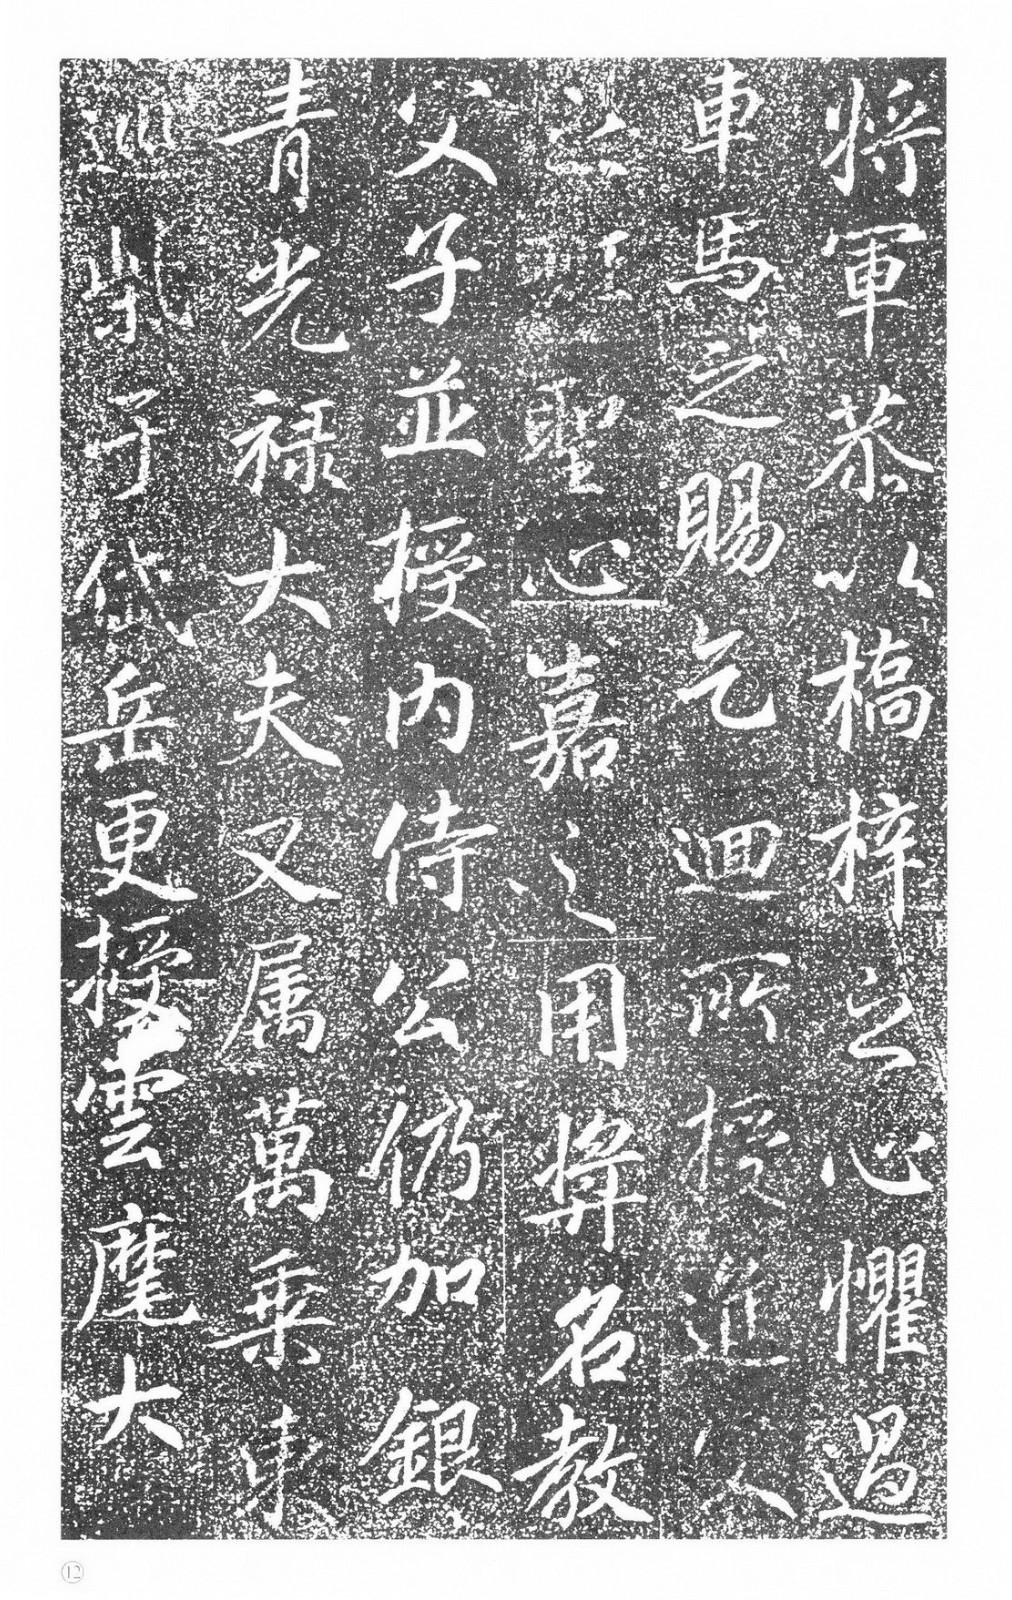 将軍恭以橋梓之心懼過
車馬之賜乞迴所授進父
之班聖心嘉之用獎名教
父子並授内侍公仍加銀
青光禄大夫又属萬乗東
巡柴于岱岳更授雲麾大
12